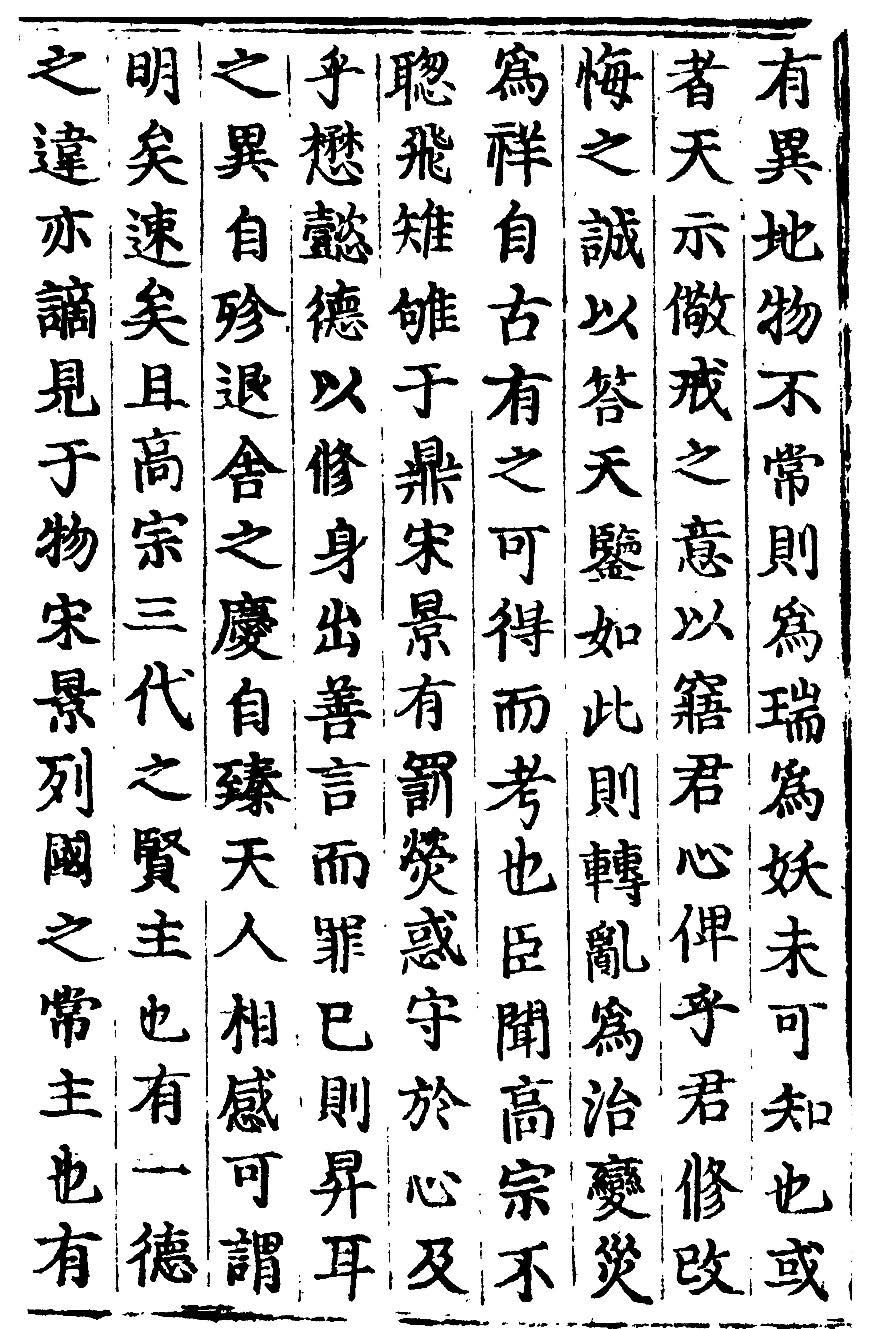 有異地物不常則為瑞為妖未可知也或
者天示儆戒之意以寤君心俾乎君修改
悔之誠以答天鑒如此則轉亂為治變災
為祥自古有之可得而考也臣聞高宗不
聦飛雉雊于鼎宋景有罰熒惑守於心及
乎懋懿德以修身出善言而罪已則昇耳
之異自殄退舍之慶自臻天人相感可謂
明矣速矣且高宗三代之賢主也有一德
之違亦謫見于物宋景列國之常主也有